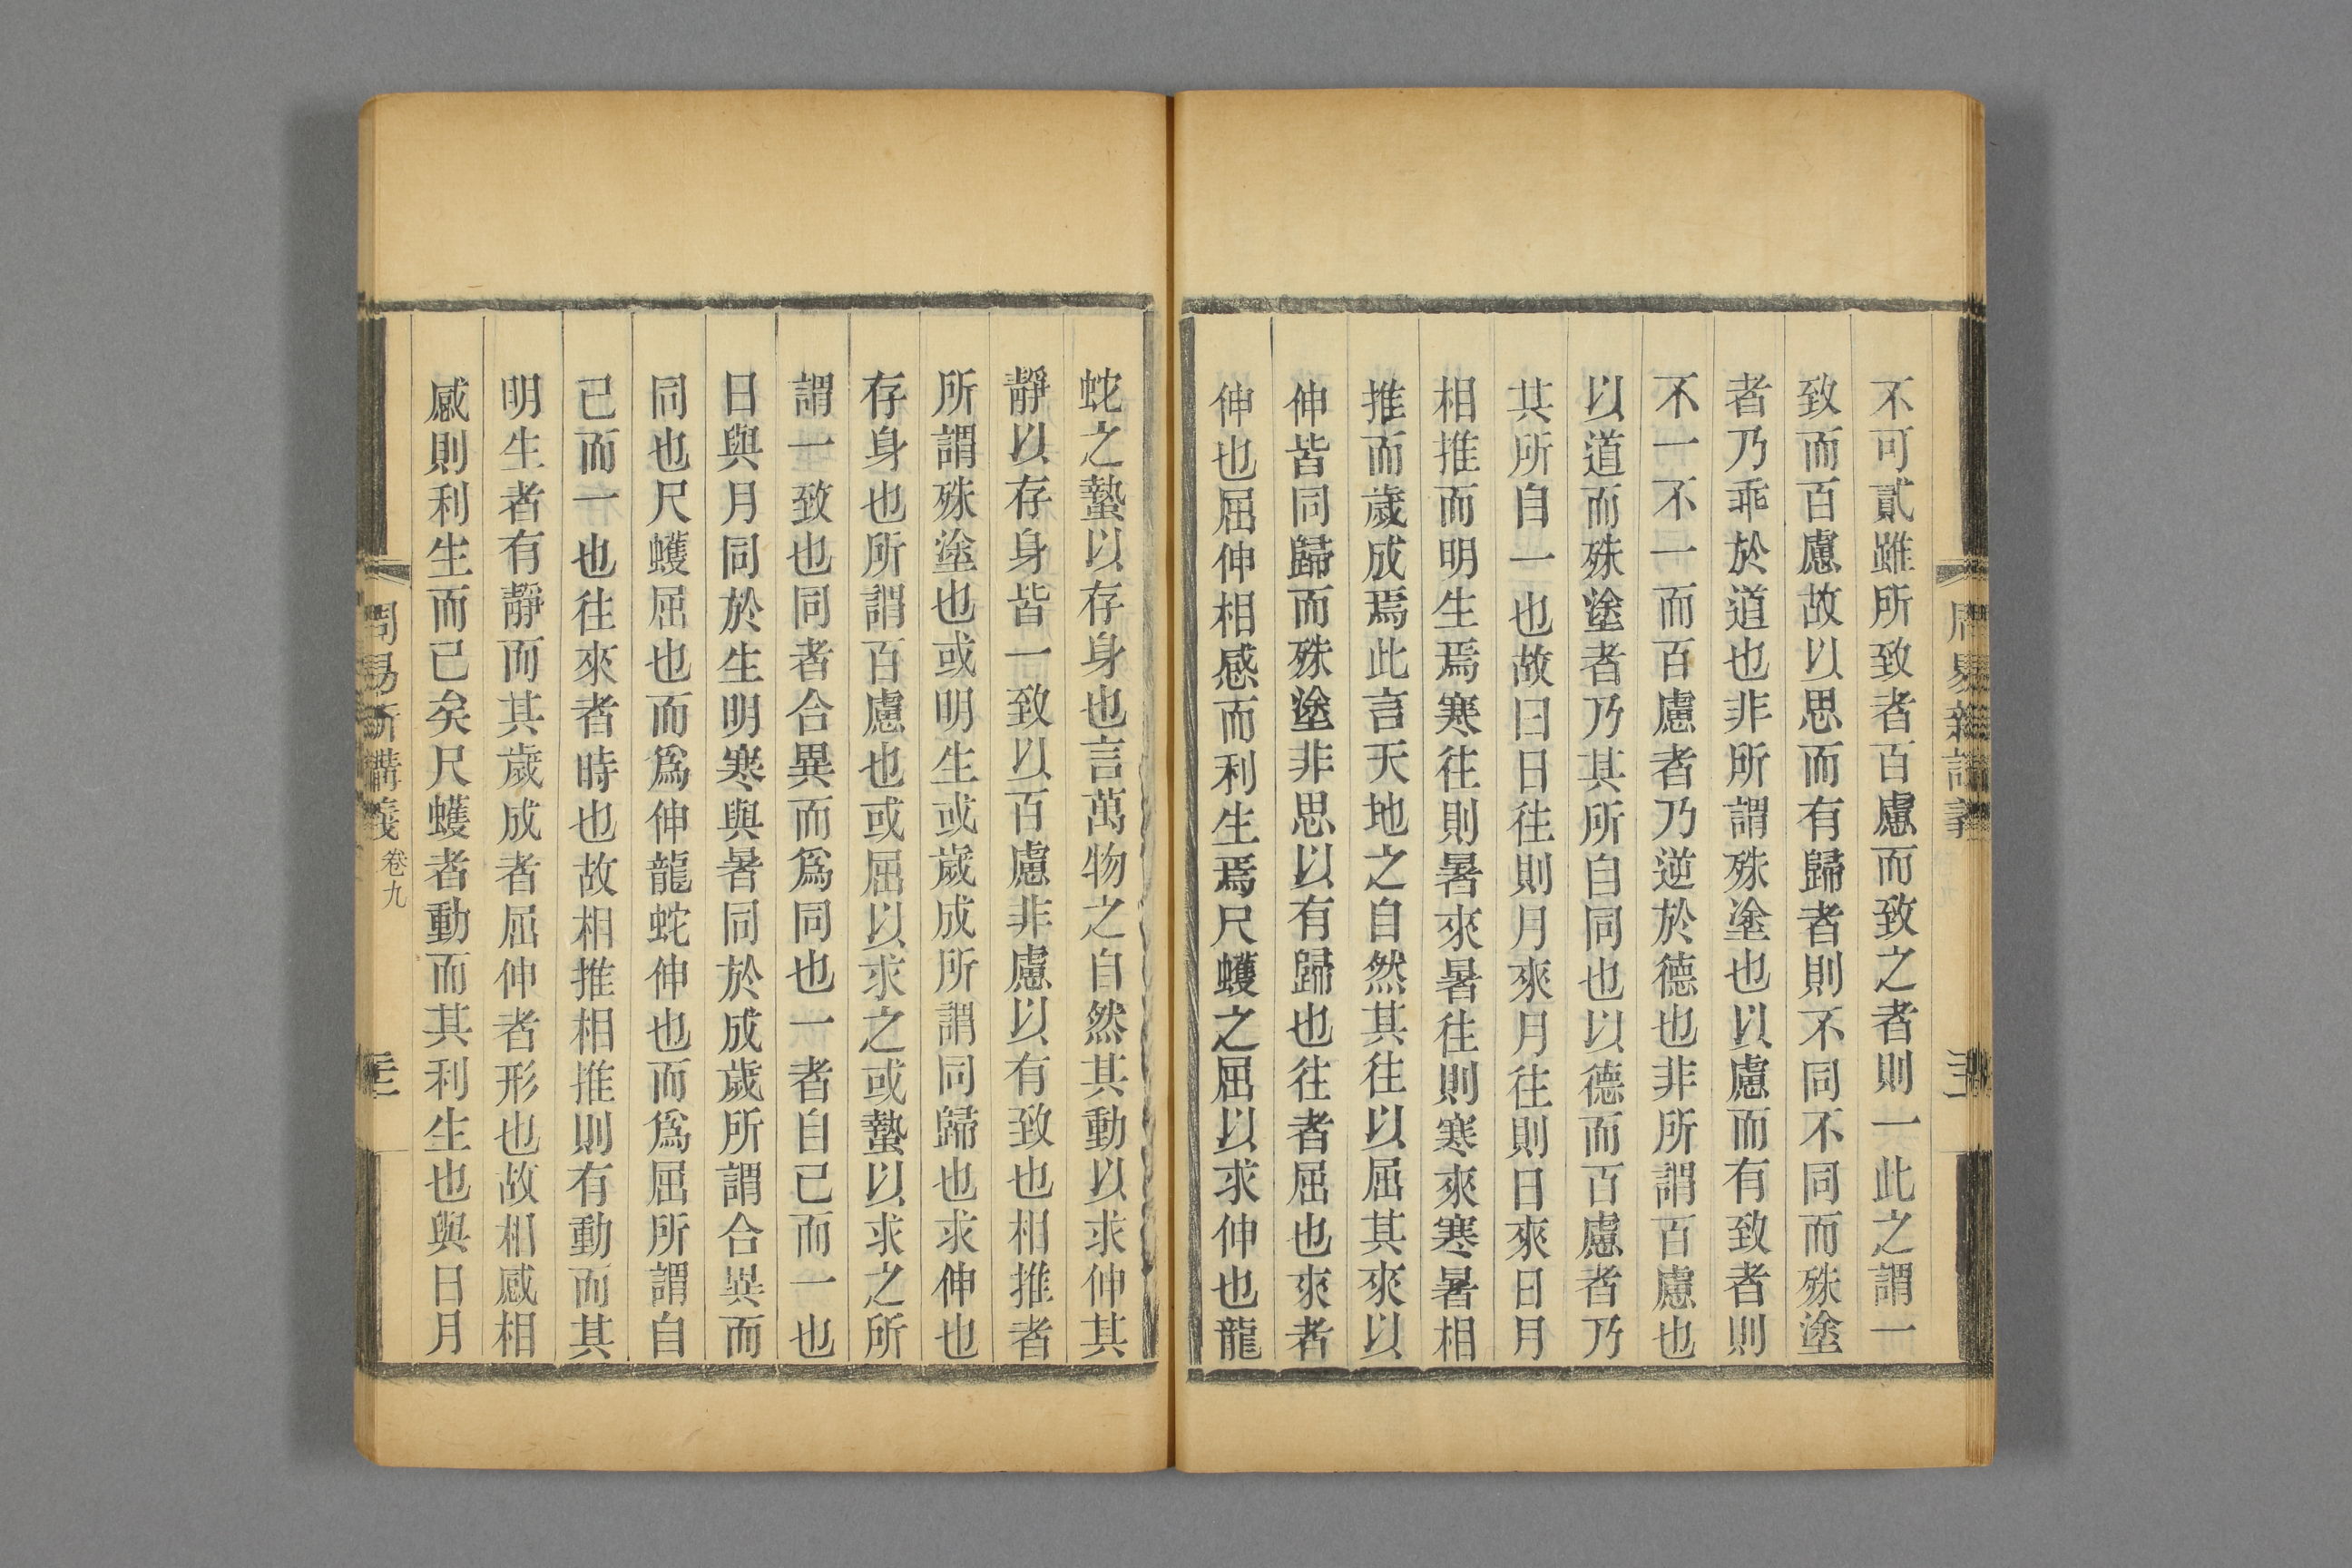 不可貳雖所致者百慮而致之者則一此之謂一
致而百慮故以思而有歸者則不同不同而殊塗
者乃乖於道也非所謂殊塗也以慮而有致者則
不一不一而百慮者乃逆於德也非所謂百慮也
以道而殊塗者乃其所自同也以德而百慮者乃
其所自一也故曰日往則月來月往則日來日月
相推而明生焉寒往則暑來暑往則寒來寒暑相
推而歲成焉此言天地之自然其往以屈其來以
伸皆同歸而殊塗非思以有歸也往者屈也來者
伸也屈伸相感而利生焉尺蠖之屈以求伸也龍
蛇之蟄以存身也言萬物之自然其動以求伸其
靜以存身皆一致以百慮非慮以有致也相推者
所謂殊塗也或明生或歲成所謂同歸也求伸也
存身也所謂百慮也或屈以求之或蟄以求之所
謂一致也同者合異而爲同也一者自已而一也
日與月同於生明寒與暑同於成歲所謂合異而
同也尺蠖屈也而爲伸龍蛇伸也而爲屈所謂自
已而一也往來者時也故相推相推則有動而其
明生者有靜而其歲成者屈伸者形也故相感相
感則利生而已矣尺蠖者動而其利生也與日月
周易新講義 卷九